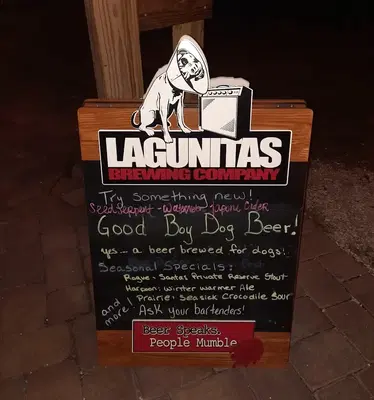 LAGUNITAS
BREWING COMPANY
Try something new!
Seed Serpent - Cider
Good Boy Dog Beer!
yes... a beer brewed for dogs!
Seasonal Specials:
Rogue: Santas Private Reserve Stout
Harpoon: Winter Warmer Ale
Prairie: Seasick Crocodile Sour
and more!
Ask your bartenders!
Beer Speaks,
People Mumble